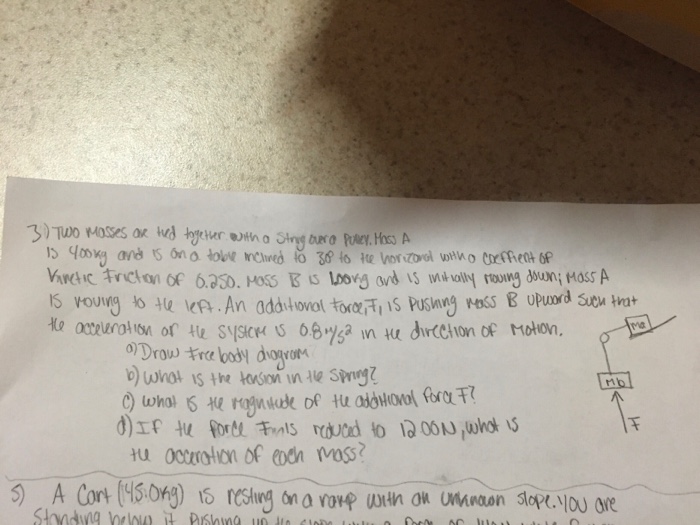 3) Two masses are tied together with a string over a pulley. Mass A
is 400kg and is on a table inclined to 38° to the horizontal with a coefficient of
kinetic friction of 0.250. Mass B is 600kg and is initially moving down; mass A
is moving to the left. An additional force, F, is pushing mass B upword such that
the acceleration of the system is 0.8 m/s² in the direction of motion.
a) Draw free body diagram
b) what is the tension in the spring?
c) what is the magnitude of the additional force F?
d) If the force F is reduced to 1200N, what is
the acceration of each mass?
Ma
Mb
F
5) A cart (145.0kg) is resting on a ramp with an unknown slope. You are
standing below it pushing up the slope with a